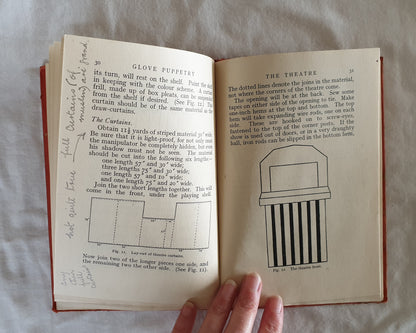 30
GLOVE PUPPETRY
its turn, will rest on the shelf. Paint the
in keeping with the colour scheme. A
frill, made up of box pleats, can be
from the shelf if desired. (See Fig. 12.) The
curtain should be of the same material as the
draw-curtains.
The Curtains.
Obtain yards of striped material 31" wide.
Be sure that it is light-proof, for not only must
the manipulator be completely hidden, but even
his shadow must not be seen. The material
should be cut into the following six lengths—
one length 57" and 30" wide;
three lengths 75" and 30" wide;
one length 57" and 10" wide;
and one length 75" and 20" wide.
Join the two short lengths together. This will
come in the front, under the playing shelf.
Fig. 11. Lay-out of theatre curtains.
Now join two of the longer pieces one side, and
the remaining two the other side. (See Fig. 11).
not quite true
full curtains
THE THEATRE
31
The dotted lines denote the joins in the material,
not where the corners of the theatre come.
The opening will be at the back. Sew some
tapes on either side of the opening to tie. Make
one-inch hems at the top and bottom. The top
hem will take expanding wire rods, one on each
side. These are hooked on to screw-eyes,
fastened to the top of corner posts. If the
show is used out of doors, or in a very draughty
hall, iron rods can be slipped in the bottom hem.
Fig. 12 The theatre front.